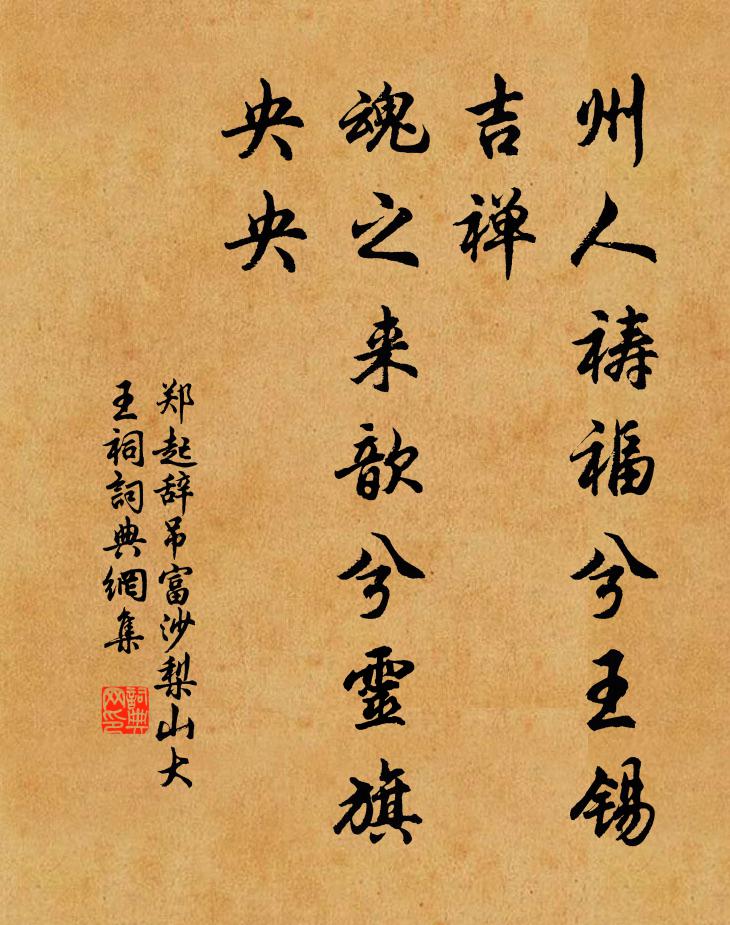 州人祷福兮王锡
吉禅
魂之来歆兮靈旗
央央
郑起辞吊富沙梨山大
王祠詞典網集
詞典
网印